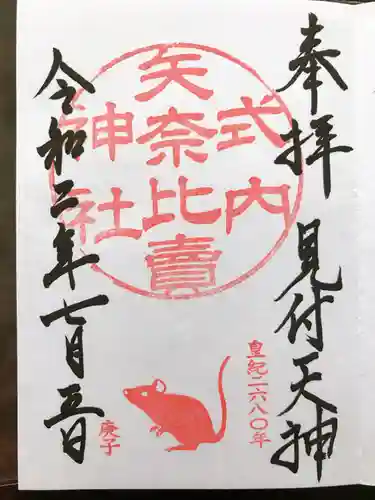 奉拝 見付天神
式内
矢奈比賣
神社
皇紀二六八〇年
庚子
令和二年七月五日